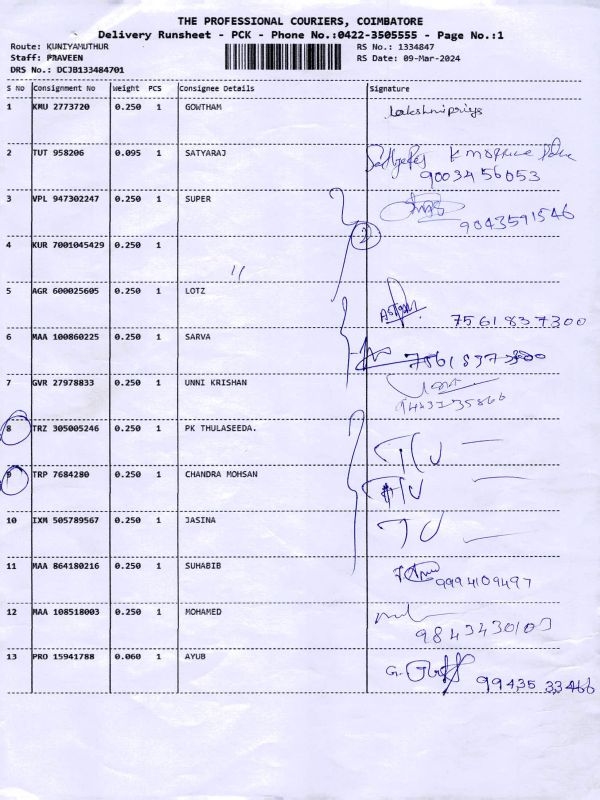 THE PROFESSIONAL COURIERS, COIMBATORE
Delivery Runsheet - PCK - Phone No.:0422-3505555 - Page No.:1
Route: KUNIYAMUTHUR RS No.: 1334847
Staff: PRAVEEN RS Date: 09-Mar-2024
DRS No.: DCJB133484701
S No Consignment No Weight PCS Consignee Details Signature
1 KMU 2773720 0.250 1 GOWTHAM Lakshmipriya
2 TUT 958206 0.095 1 SATYARAJ
9003456053
3 VPL 947302247 0.250 1 SUPER 9043591546
2
4 KUR 7001045429 0.250 1
"
5 AGR 600025605 0.250 1 LOTZ
7561837300
6 MAA 100860225 0.250 1 SARVA
7 GVR 27978833 0.250 1 UNNI KRISHAN
8 TRZ 305005246 0.250 1 PK THULASEEDA.
9 TRP 7684280 0.250 1 CHANDRA MOHSAN
10 IXM 505789567 0.250 1 JASINA
11 MAA 864180216 0.250 1 SUHABIB 9994109497
12 MAA 108518003 0.250 1 MOHAMED
9843430103
13 PRO 15941788 0.060 1 AYUB
G. 9943533466